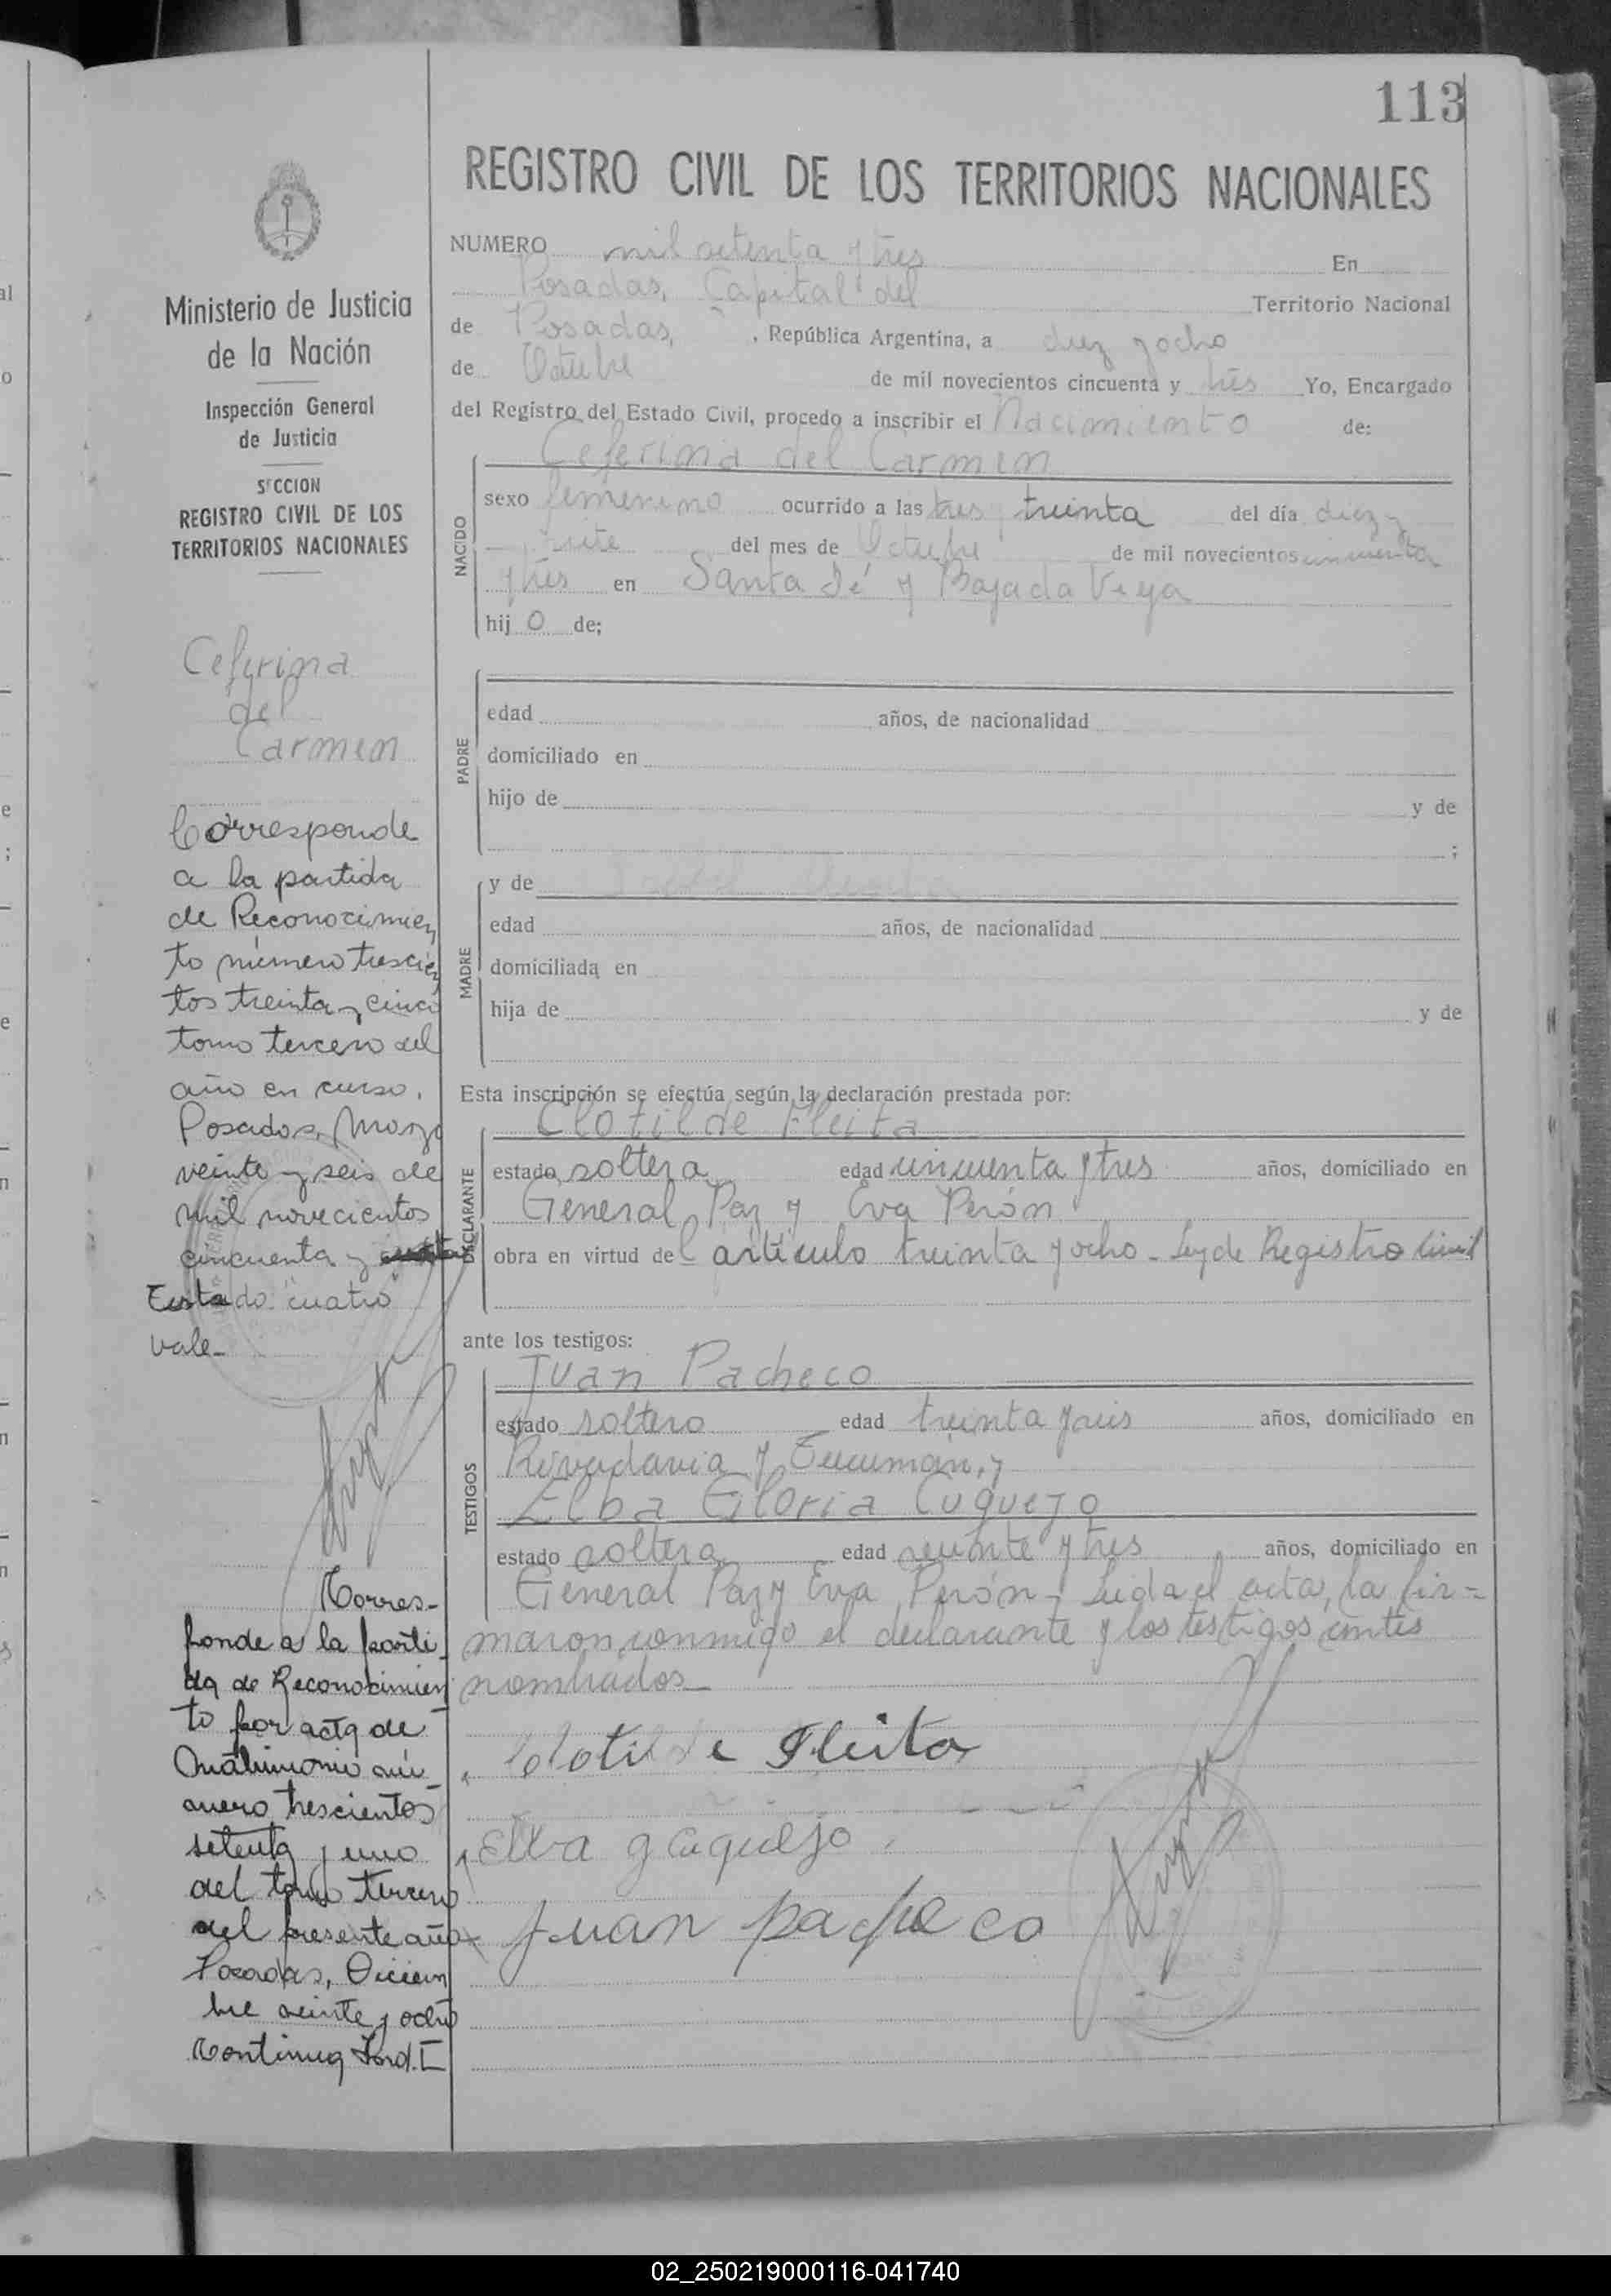 113
REGISTRO CIVIL DE LOS TERRITORIOS NACIONALES
NUMERO mil setenta y tres En
Posadas, Capital del Territorio Nacional
de Posadas, , República Argentina, a diez y ocho
de Octubre de mil novecientos cincuenta y tres Yo, Encargado
del Registro del Estado Civil, procedo a inscribir el Nacimiento de:
Ceferina del Carmen
NACIDO
sexo femenino ocurrido a las tres treinta del día diez y
siete del mes de Octubre de mil novecientos cincuenta
y tres en Santa Fé y Bajada Vieja
hij o de;
PADRE
edad años, de nacionalidad
domiciliado en
hijo de y de
;
MADRE
y de
edad años, de nacionalidad
domiciliada en
hija de y de
Esta inscripción se efectúa según la declaración prestada por:
Clotilde Fleita
DECLARANTE
estado soltera edad cincuenta y tres años, domiciliado en
General Paz y Eva Perón
obra en virtud del artículo treinta y ocho - Ley de Registro Civil
ante los testigos:
Juan Pacheco
TESTIGOS
estado soltero edad treinta y seis años, domiciliado en
Rivadavia y Tucumán, y
Elba Gloria Cuquejo
estado soltera edad veinte y tres años, domiciliado en
General Paz y Eva Perón - Leida el acta, la fir=
maron conmigo el declarante y los testigos antes
nombrados
Clotilde Fleita
Elba g cuquejo
Juan pacheco
Ministerio de Justicia
de la Nación
Inspección General
de Justicia
SECCION
REGISTRO CIVIL DE LOS
TERRITORIOS NACIONALES
Ceferina
del
Carmen
Corresponde
a la partida
de Reconocimien
to número trescien
tos treinta y cinco
tomo tercero del
año en curso.
Posadas, Marzo
veinte y seis de
mil novecientos
cincuenta y
Testado "cuatro"
vale-
Corres-
ponde a la parti
da de Reconocimien
to por acta de
Matrimonio nú
mero trescientos
setenta y uno
del tomo tercero
del presente año
Posadas, Diciem
bre veinte y ocho
Continua Fond. I
02_250219000116-041740